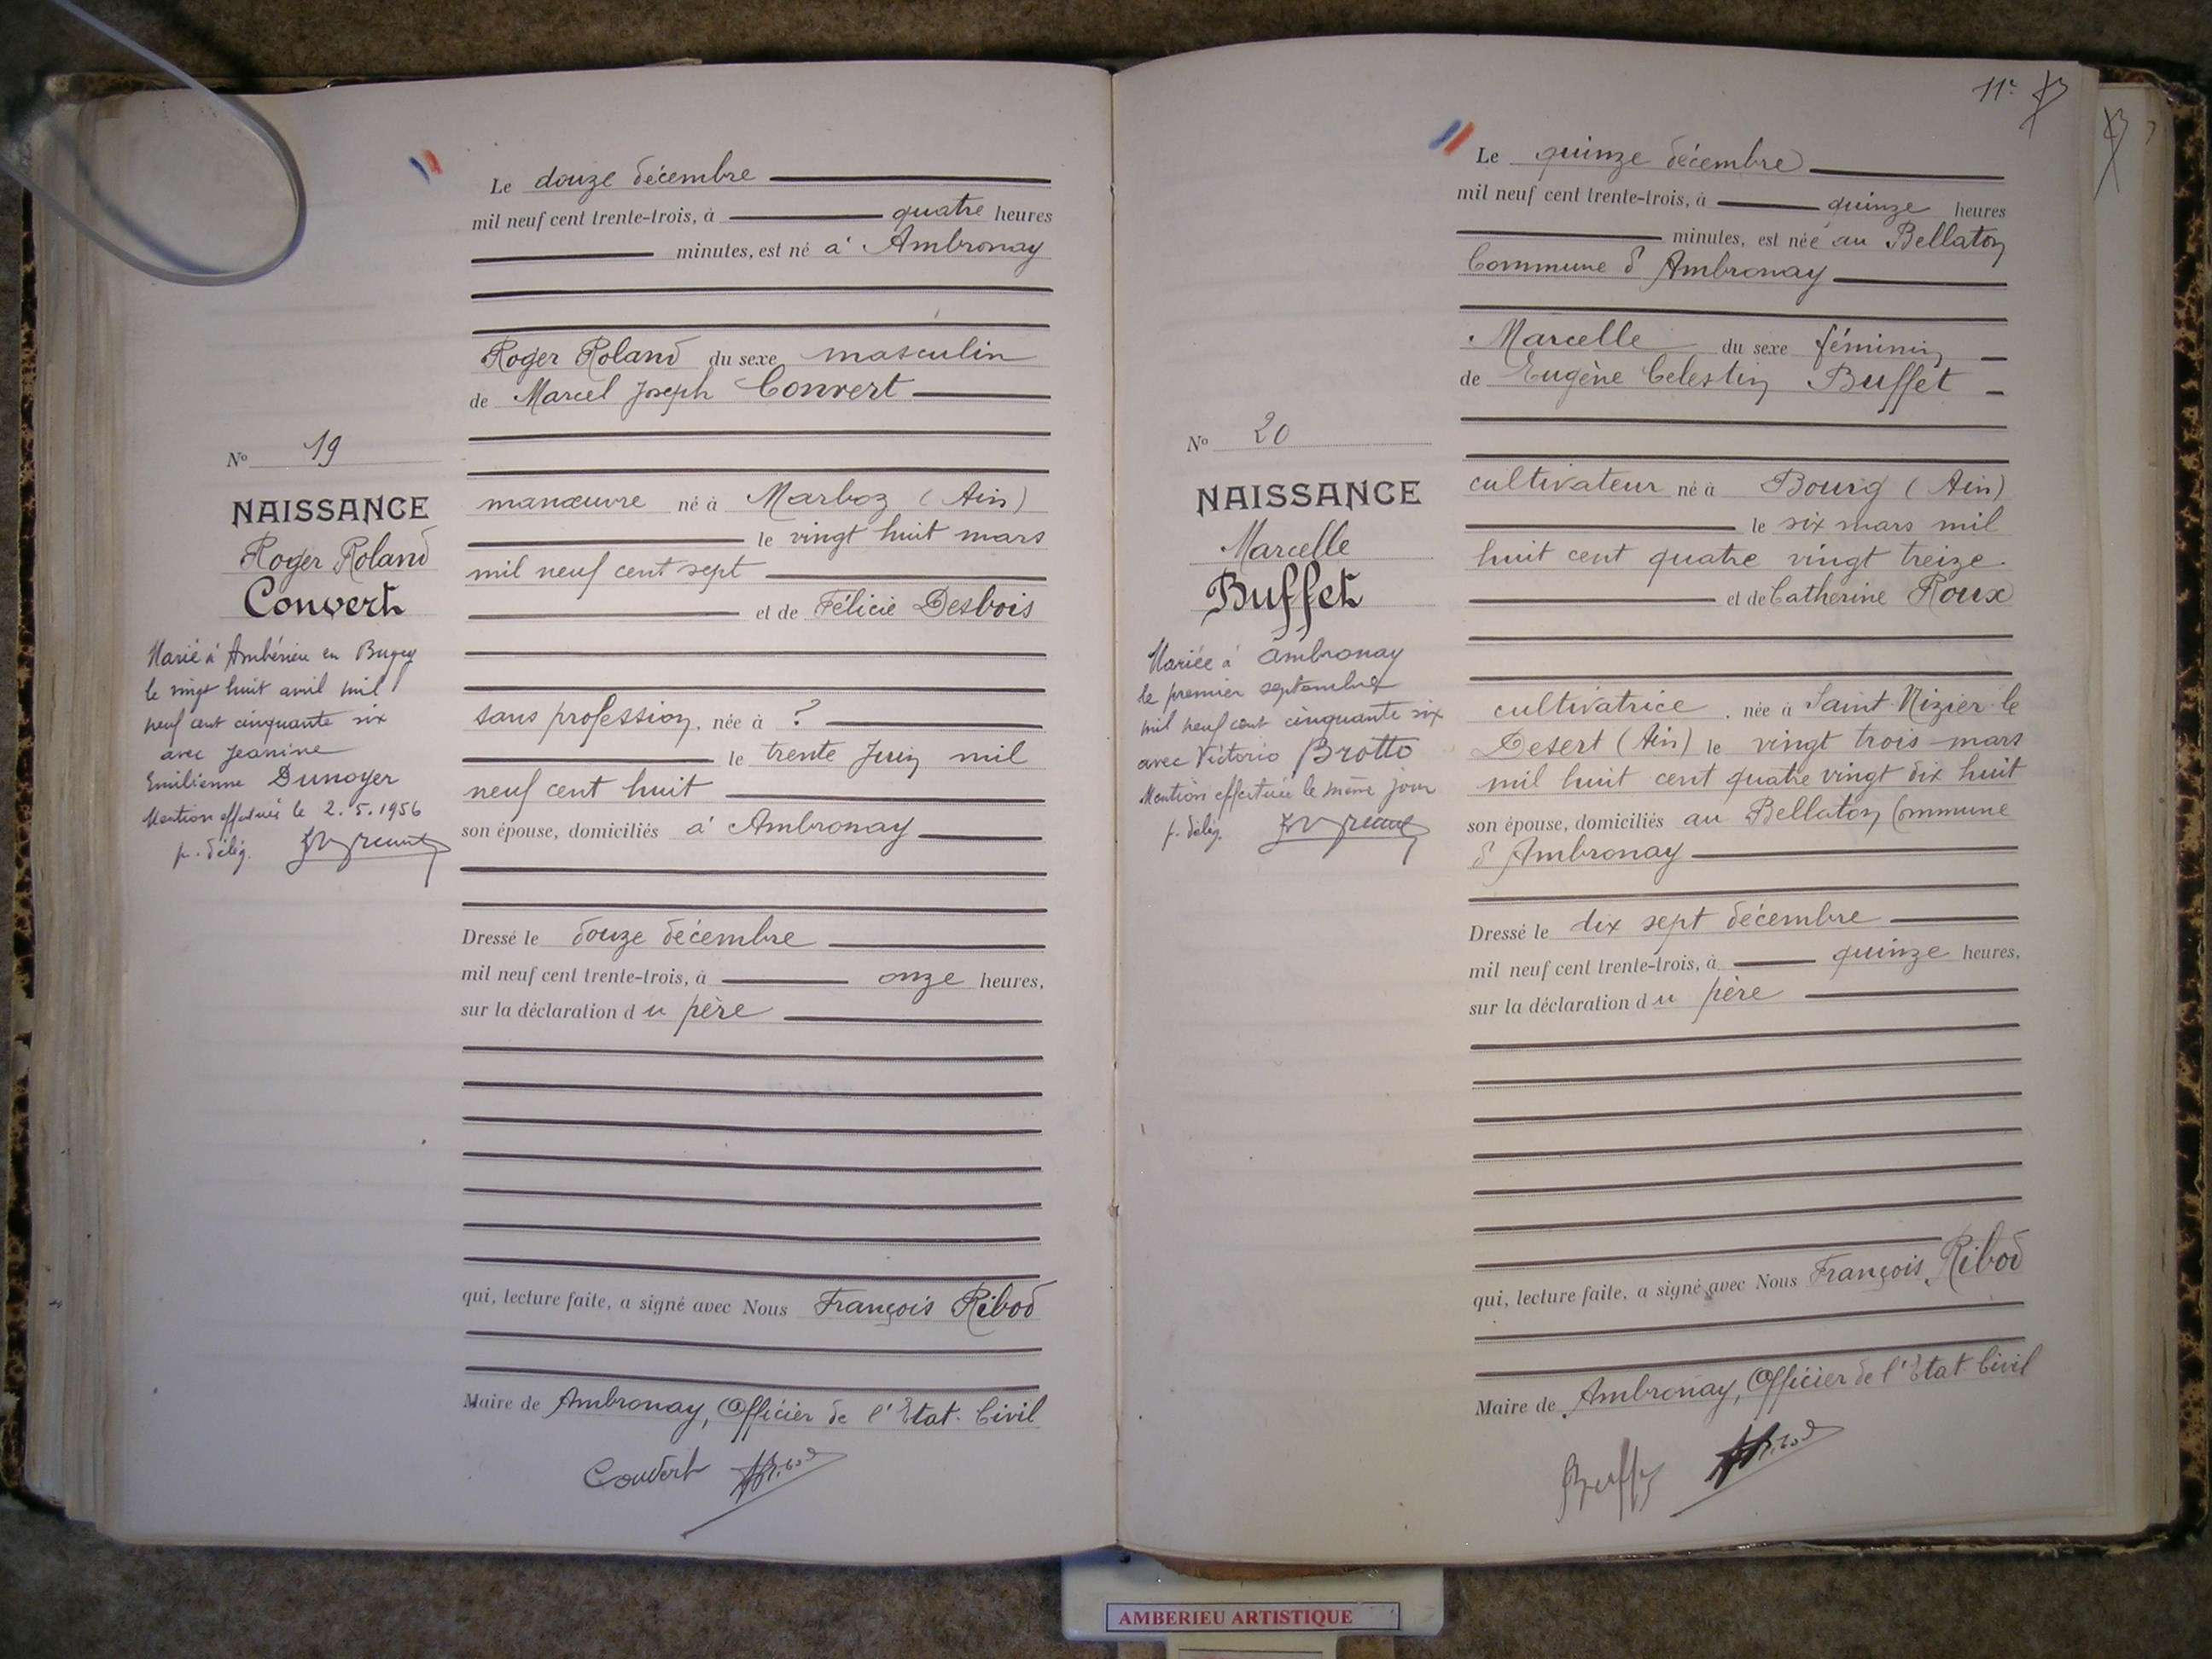 Le douze décembre
mil neuf cent trente-trois, à quatre heures
minutes, est né à Ambronay
Roger Roland du sexe masculin
de Marcel Joseph Convert
No 19
NAISSANCE
Roger Roland
Convert
Marié à Ambérieu en Bugey
le vingt huit avril mil
neuf cent cinquante six
avec Jeanine
Emilienne Dunoyer
Mention effectuée le 2.5.1956
p. délég.
manœuvre né à Marboz (Ain)
le vingt huit mars
mil neuf cent sept
et de Félicie Desbois
sans profession, née à ?
le trente Juin mil
neuf cent huit
son épouse, domiciliés à Ambronay
Dressé le douze décembre
mil neuf cent trente-trois, à onze heures,
sur la déclaration du père
qui, lecture faite, a signé avec Nous François Ribod
Maire de Ambronay, Officier de l'Etat-Civil
Convert
11e
Le quinze décembre
mil neuf cent trente-trois, à quinze heures
minutes, est née au Bellaton
Commune d'Ambronay
Marcelle du sexe féminin
de Eugène Celestin Buffet
No 20
NAISSANCE
Marcelle
Buffet
Mariée à Ambronay
le premier septembre
mil neuf cent cinquante six
avec Victorio Brotto
Mention effectuée le même jour
p. délég.
cultivateur né à Bourg (Ain)
le six mars mil
huit cent quatre vingt treize.
et de Catherine Roux
cultivatrice, née à Saint-Nizier-le
Desert (Ain) le vingt trois mars
mil huit cent quatre vingt dix huit
son épouse, domiciliés au Bellaton Commune
d'Ambronay
Dressé le dix sept décembre
mil neuf cent trente-trois, à quinze heures,
sur la déclaration du père
qui, lecture faite, a signé avec Nous François Ribod
Maire de Ambronay, Officier de l'Etat-Civil
AMBERIEU ARTISTIQUE